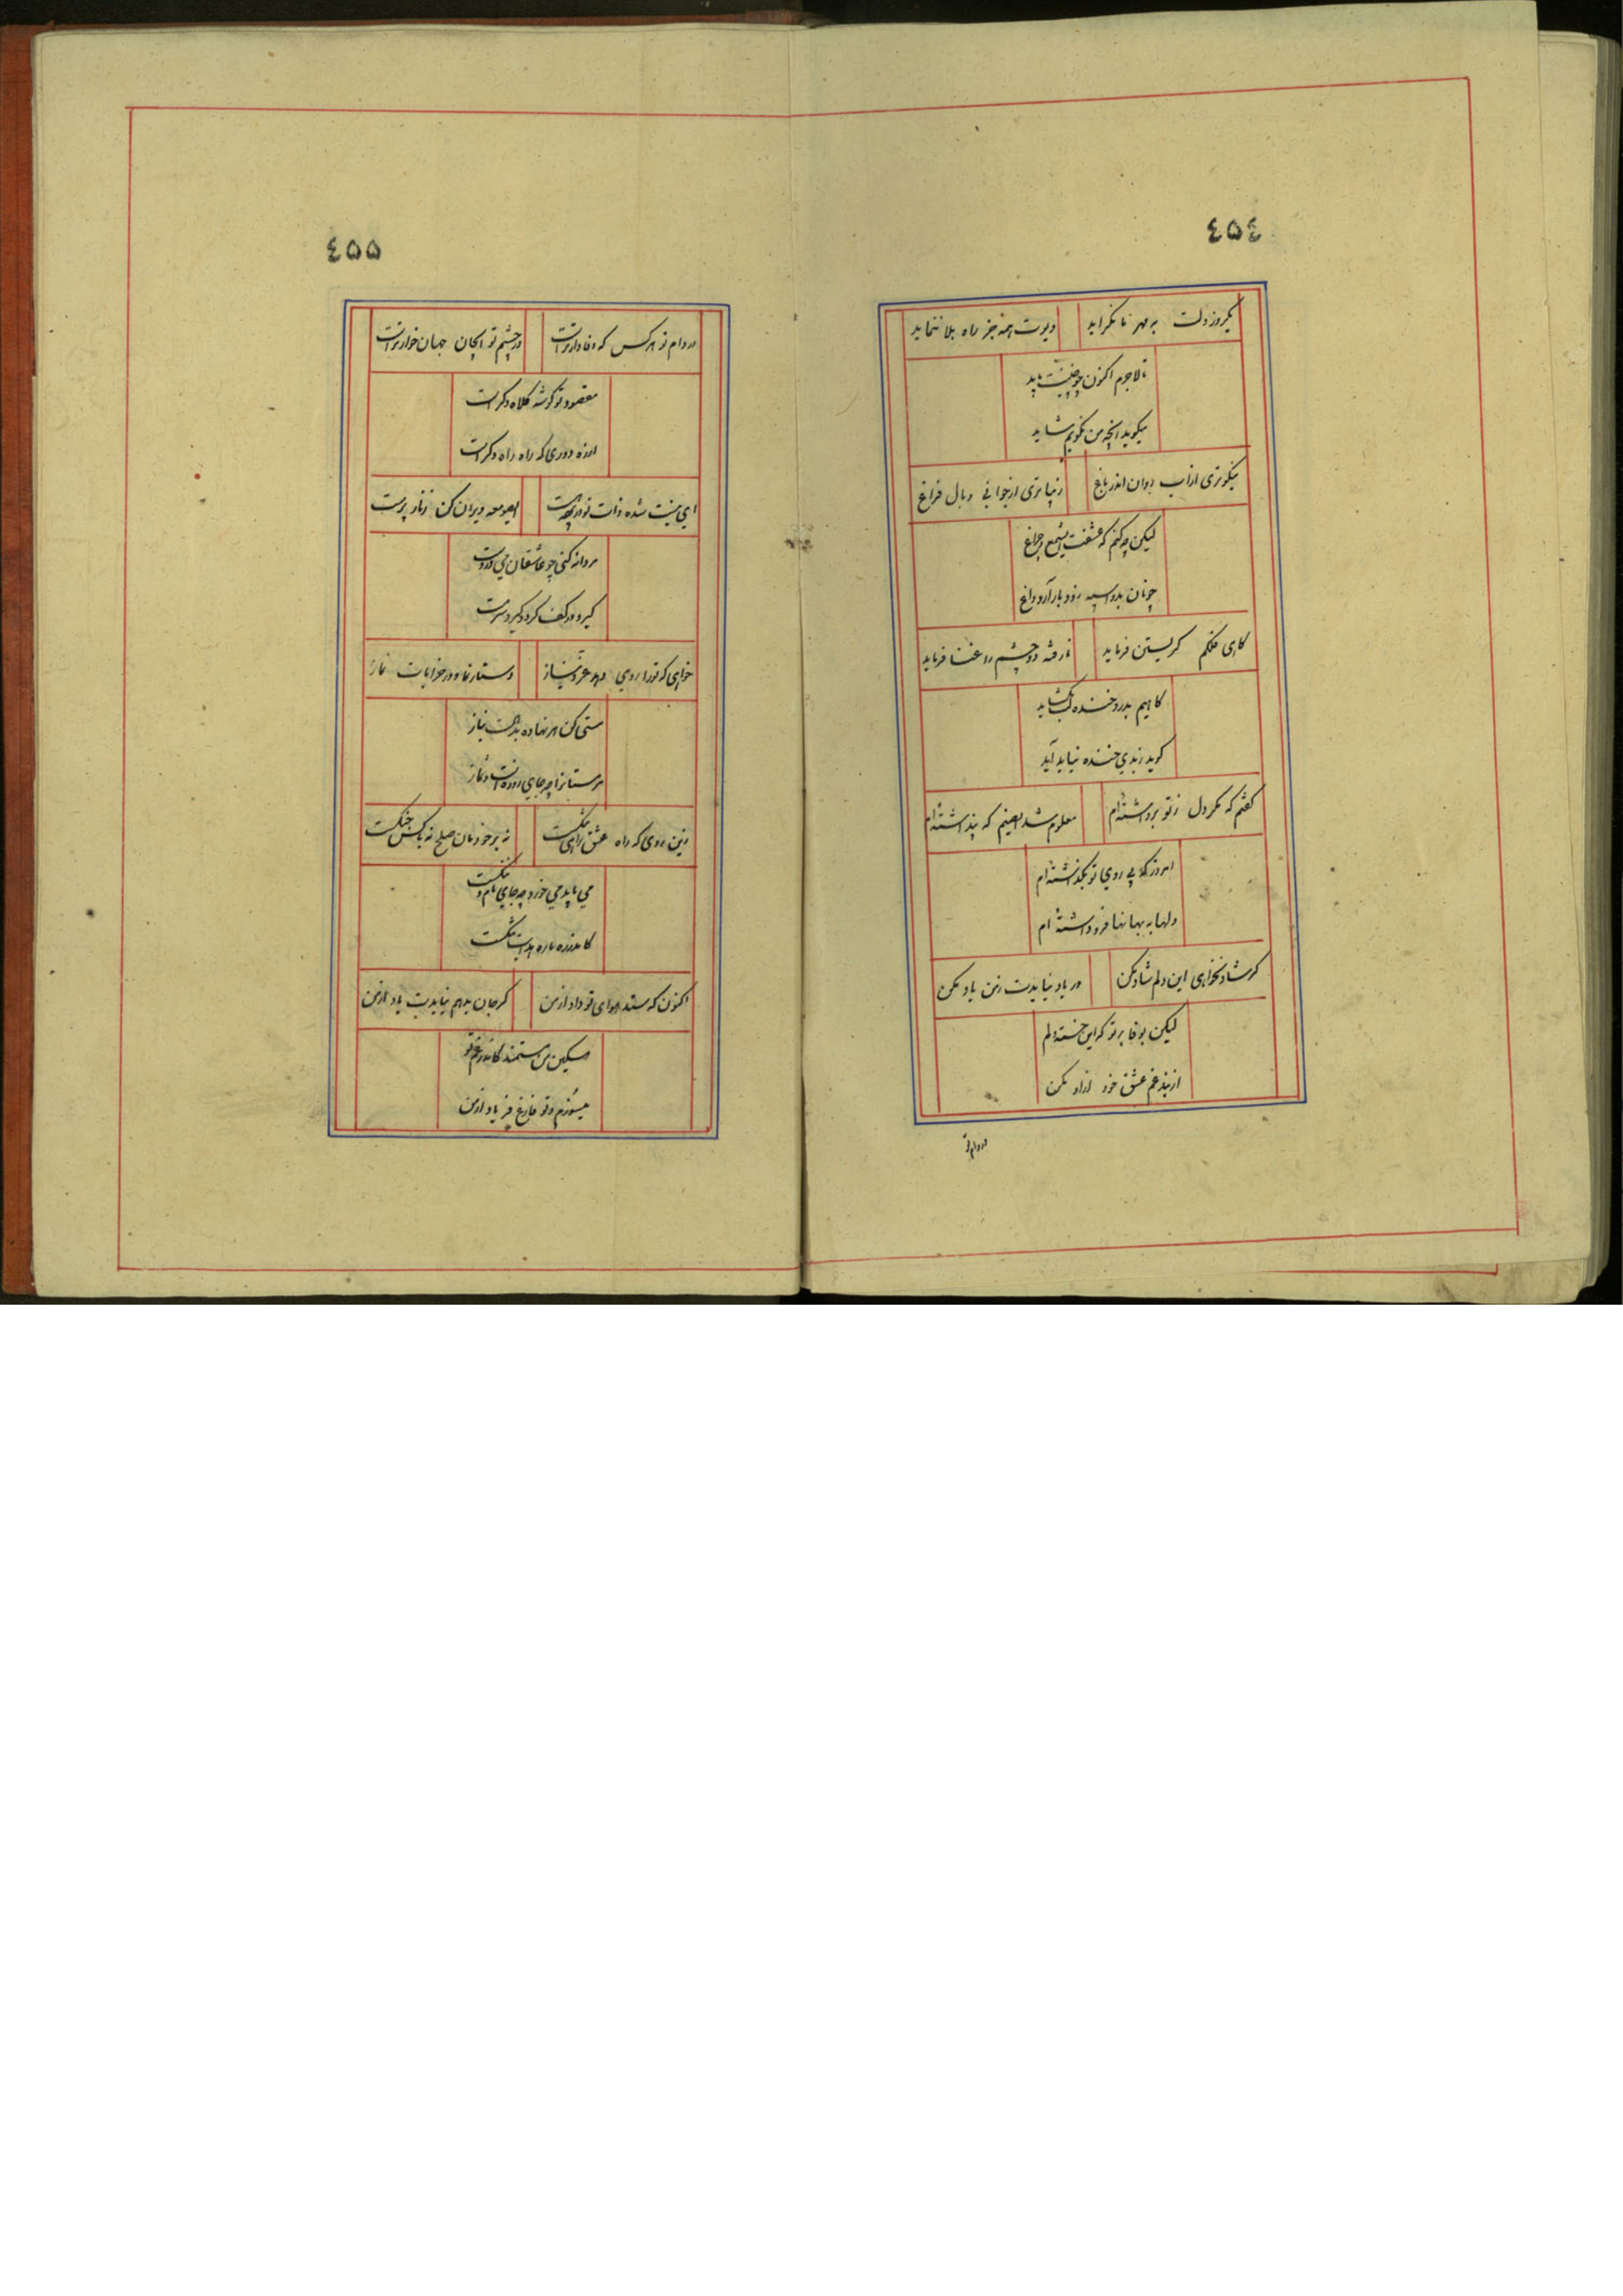 ٤٥٤
یکروز دلت به مهر ما نگراید
دیوت همه جز راه بلا ننماید
تا لاجرم اکنون چو چنینت باید
میگوید انچه من نگویم شاید
نیکوتری از اب روان اندر باغ
زیباتری از جوانی و بال فراغ
لیکن چه کنم که عشقت ای شمع و چراغ
چونان بدو اسپه رود باز آرد داغ
کاهی فلکم کریستن فرماید
نارفته دو چشم را غنا فرماید
کاهیم بدرد خنده لب بکشاید
کوید ز بدی خنده نیاید آید
کفتم که مکر دل ز تو برداشته‌ام
معلوم شد ایصنم که پنداشته‌ام
امروز که بی روی تو بگذاشته‌ام
دلها به بهانها فرو داشته‌ام
کر شاد نخواهی این دلم شاد مکن
ور یاد نیایدت ز من یاد مکن
لیکن بوفا بر تو که این خسته دلم
از بند غم عشق خود ازاد مکن
در دام تو
٤٥٥
در دام تو هر کس که وفادارترست
در چشم تو ایجان جهان خوارترست
مقصود تو کوشه کلاه دکر است
ای نیست شده ذات تو در پرده هست
ای صومعه ویران کن زنار پرست
مردانه کنی چو عاشقان می در دست
خواهی که ترا روی دهد عز و نیاز
دستار نماز در خرابات نماز
مستی کن هر نهاده بدست نیاز
مر مستانرا چه جای روزه است و نماز
زین روی که راه عشق راهی تنگست
نه بر خودمان صلح نه با کس جنگست
می باید می خورد چه جای نام و ننگست
اکنون که ستد هوای تو داد از من
کر جان بدهم نیایدت یاد از من
مسکین من مستمند کاندر غم تو
میسوزم و تو فارغ فریاد از من